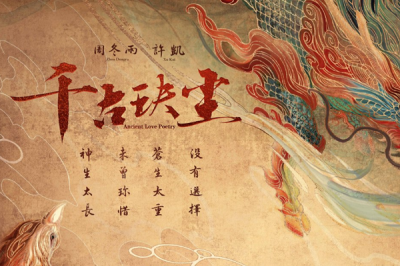 周冬雨 許凱
Xu Kai
千古玦尘
Ancient Love Poetry
神生太長
未曾珍惜
蒼生太重
沒有選擇